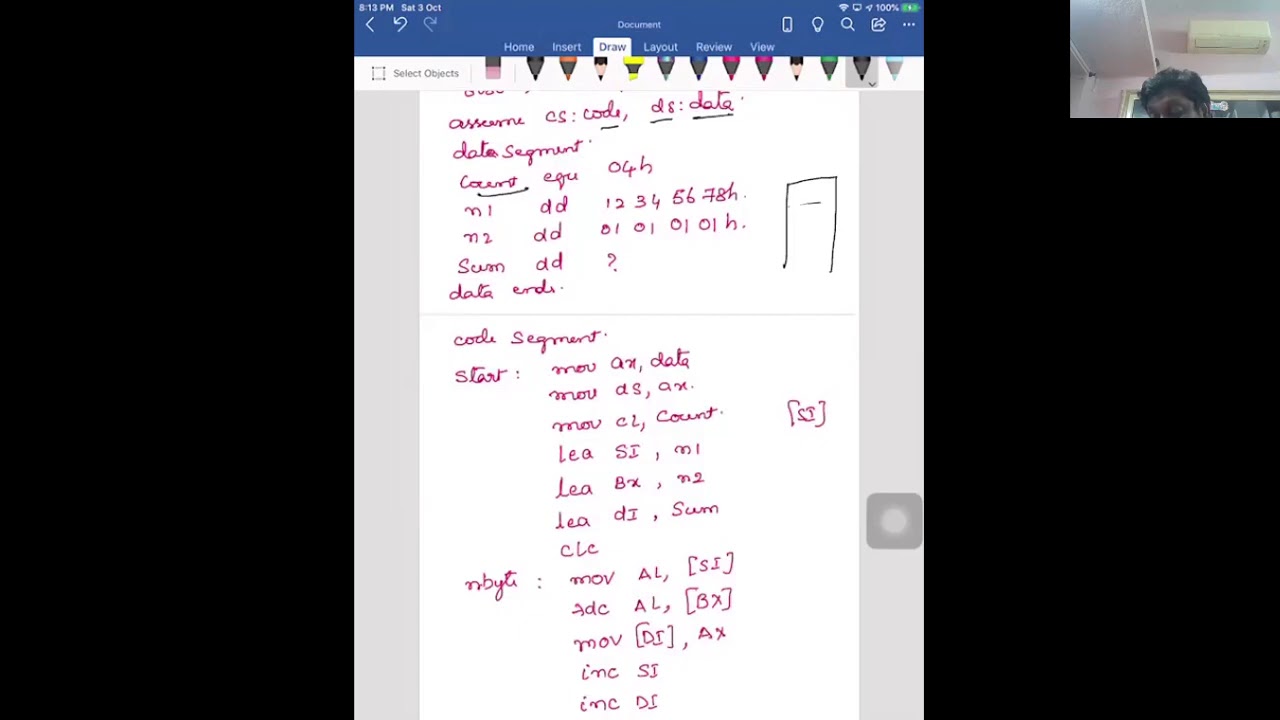 8:13 PM Sat 3 Oct
100%
Document
Home Insert Draw Layout Review View
Select Objects
assume cs: code, ds: data
data segment
Count equ 04h
n1 dd 12 34 56 78h.
n2 dd 01 01 01 01 h.
Sum dd ?
data ends.
code Segment.
Start: mov ax, data
mov ds, ax.
mov CL, Count.
[SI]
lea SI, n1
lea Bx, n2
lea dI, Sum
CLC
nbyte: mov AL, [SI]
adc AL, [BX]
mov [DI], Ax
inc SI
inc DI